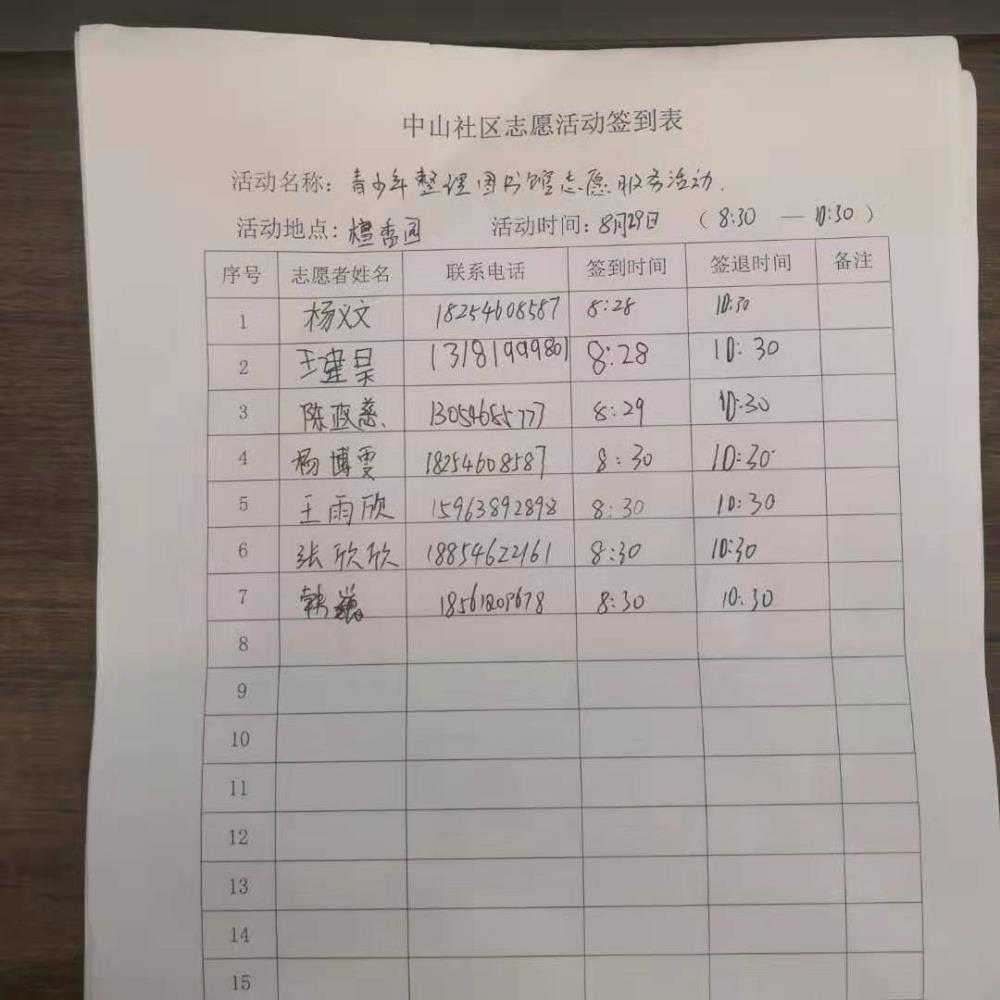 中山社区志愿活动签到表
活动名称：青少年整理图书馆志愿服务活动.
活动地点：檀香园 活动时间：8月29日 （8:30 — 10:30）
序号 志愿者姓名 联系电话 签到时间 签退时间 备注
1 杨义文 18254608587 8:28 10:30
2 王建昊 13181999801 8:28 10:30
3 陈政慈 13054685777 8:29 10:30
4 杨博雯 18254608587 8:30 10:30
5 王雨欣 15963892898 8:30 10:30
6 张欣欣 18854622161 8:30 10:30
7 韩 18561209678 8:30 10:30
8
9
10
11
12
13
14
15